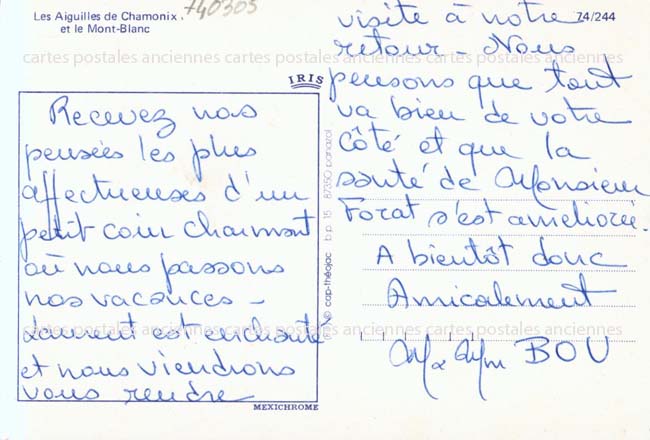 Les Aiguilles de Chamonix
et le Mont-Blanc
740305
74/244
IRIS
Recevez nos
pensées les plus
affectueuses d'un
petit coin charmant
où nous passons
nos vacances -
Laurent est enchanté
et nous viendrons
vous rendre
MEXICHROME
cap-théojac b.p. 15 87350 panazol
visite à notre
retour - Nous
pensons que tout
va bien de votre
côté et que la
santé de Monsieur
Forat s'est améliorée.
A bientôt donc
Amicalement
BOU
cartes postales anciennes cartes postales anciennes cartes postales anciennes
cartes postales anciennes cartes postales anciennes cartes postales anciennes